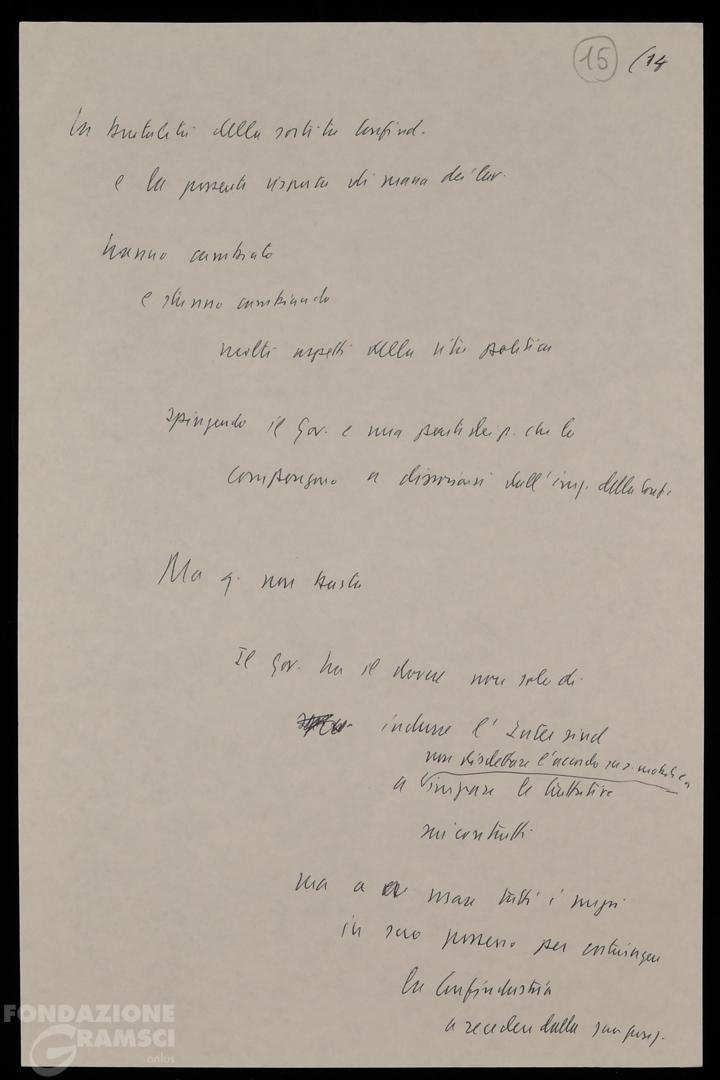 15 (14
La brutalità della sortita Confind.
e la possente risposta di massa dei lav.
hanno cambiato
e stanno cambiando
molti aspetti della vita politica
spingendo il Gov. e una parte dei p. che lo
compongono a dissociarsi dall'imp. della Conf.
Ma q. non basta
Il Gov. ha il dovere non solo di
indurre l'Intersind
non disdettare l'accordo su s. mobile e
a iniziare le trattative
sui contratti
ma a usare tutti i mezzi
in suo possesso per costringere
la Confindustria
a recedere dalla sua pos.
FONDAZIONE
GRAMSCI
onlus